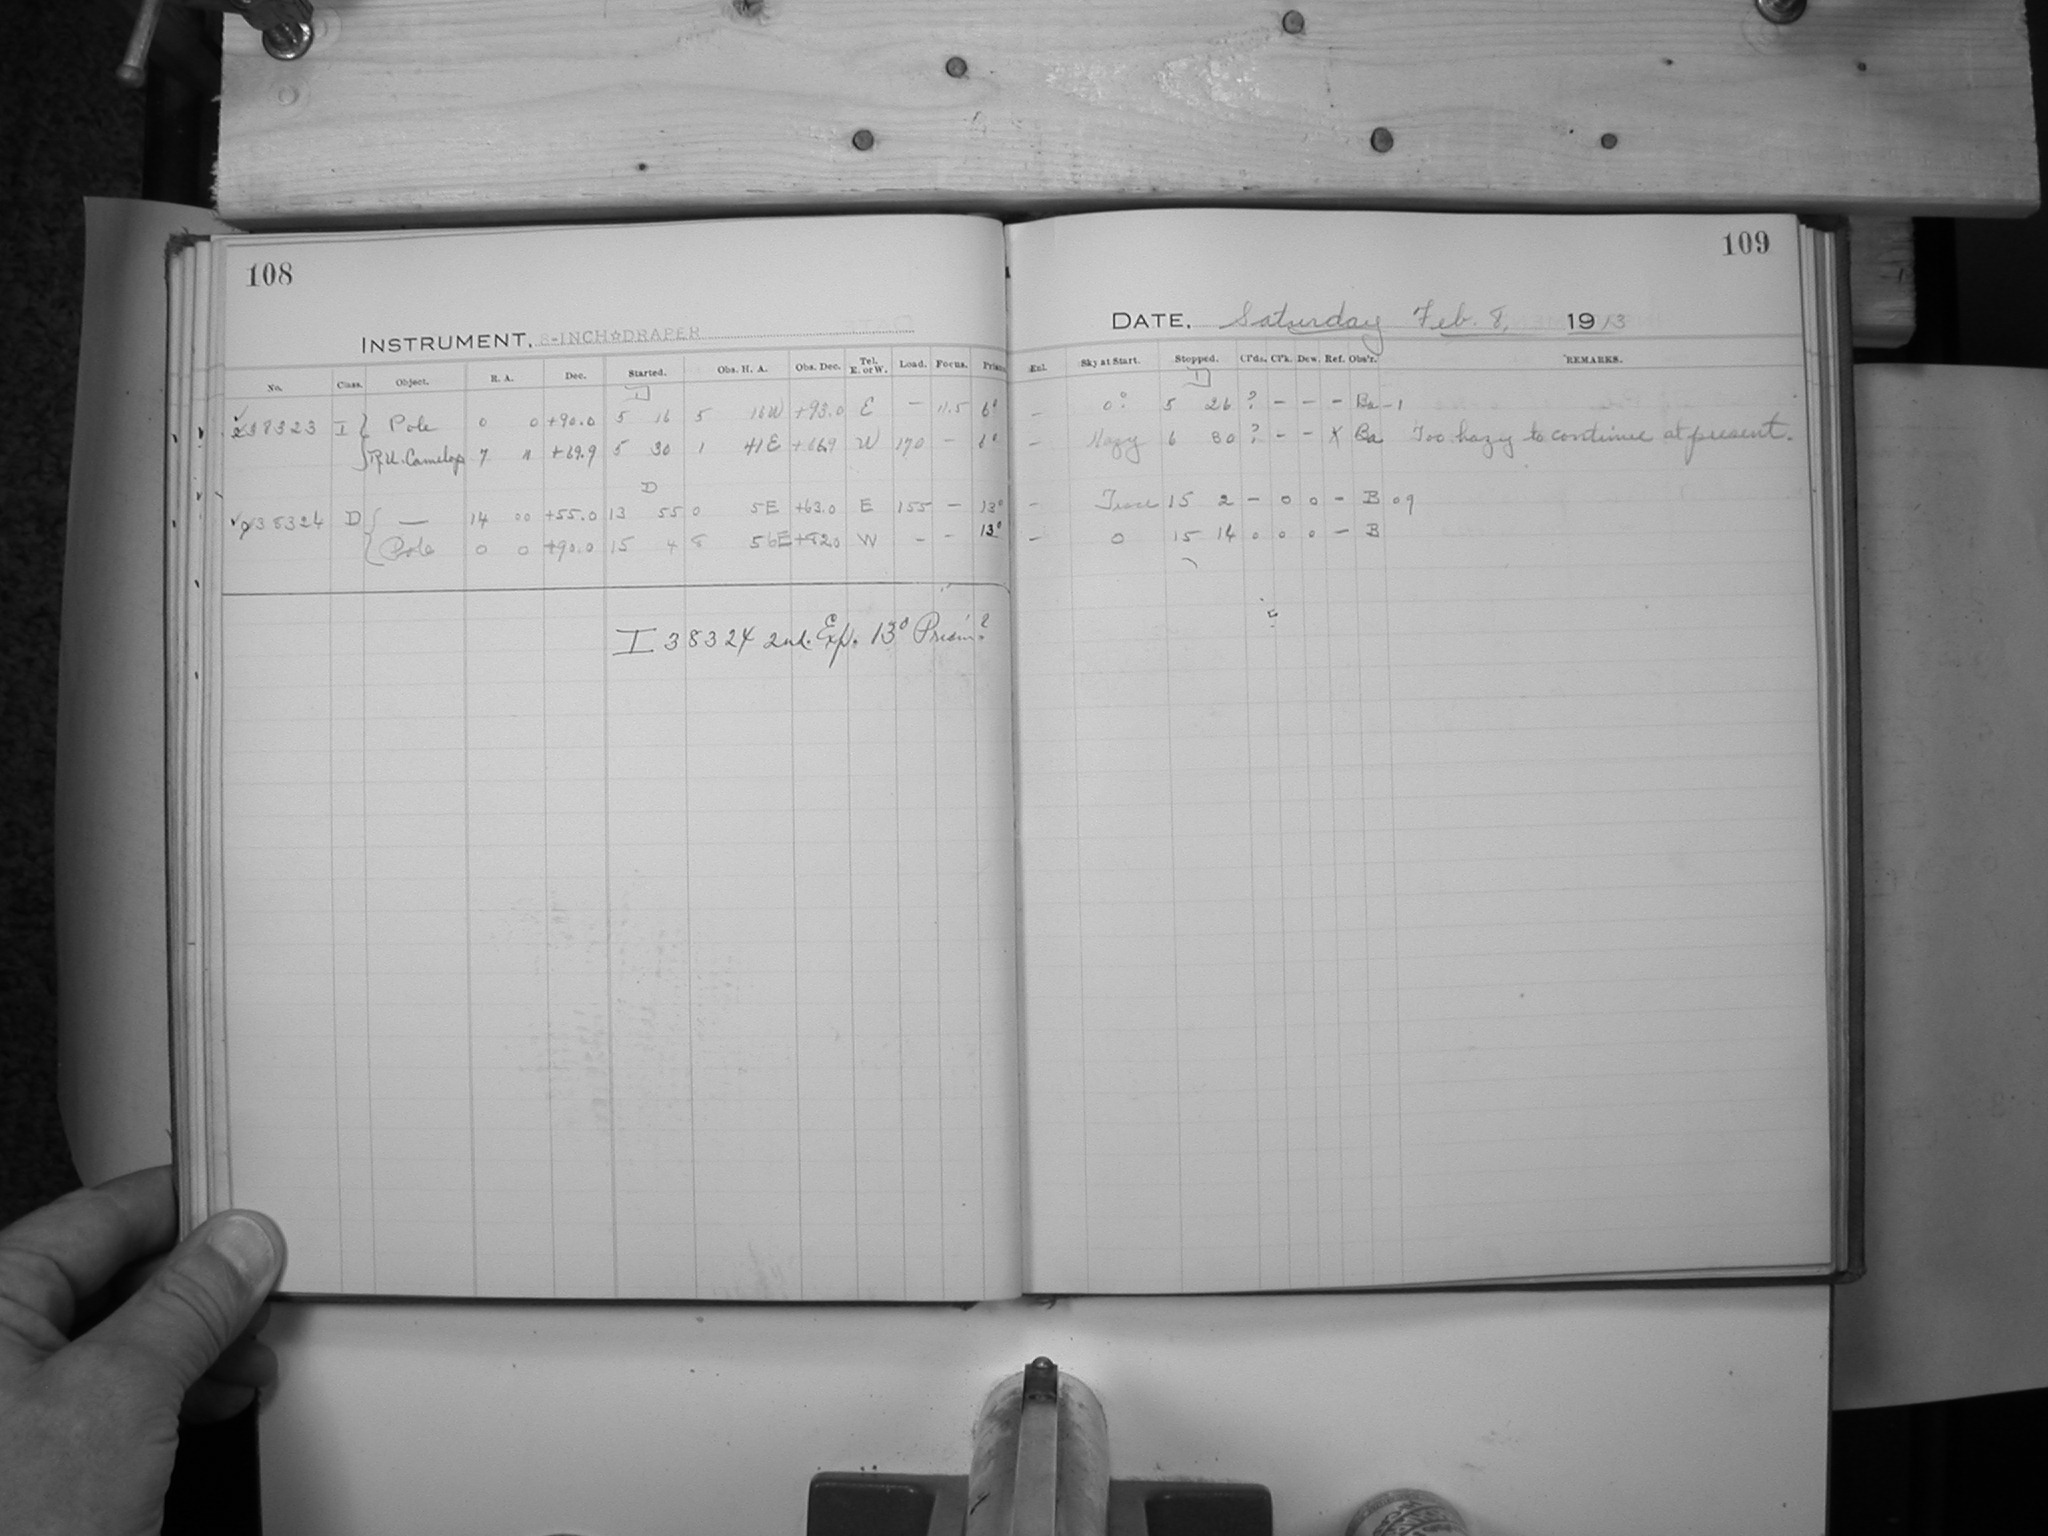 108
INSTRUMENT. 8-INCH☆DRAPER
No. Class. Object. R. A. Dec. Started. Obs. H. A. Obs. Dec. Tel. E. or W. Load. Focus. Prism
D
38323 I { Pole 0 0 +90.0 5 16 5 16W +93.0 E — 11.5 6°
R.U. Camelop 7 11 +69.9 5 30 1 41E W 170 — 6°
D
38324 D { — 14 00 +55.0 13 55 0 5E +63.0 E 155 — 13°
Pole 0 0 +90.0 15 4 8 56E +82.0 W - - 13°
I 38324 2nd. Exp. 13° Prism?
109
DATE. Saturday Feb. 8, 1913
Enl. Sky at Start. Stopped. Cl'ds. Cl'k. Dew. Ref. Obs'r. REMARKS.
D
— 0? 5 26 ? - - - Ba-1
— Hazy 6 30 ? - - X Ba Too hazy to continue at present.
— 15 2 - 0 0 - B 09
— 0 15 14 0 0 0 — B